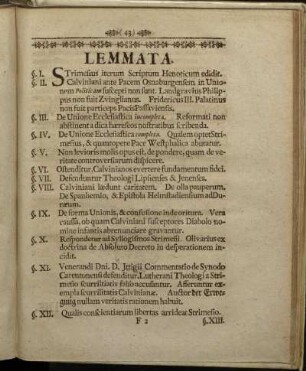 ( 43 )
LEMMATA.
§. I. STrimesius iterum Scriptum Henoticum edidit.
§. II. Calviniani ante Pacem Osnaburgensem in Unio-
nem Politicam suscepti non sunt. Landgravius Philip-
pus non fuit Zvinglianus. Fridericus III. Palatinus
non fuit particeps Pacis Passaviensis.
§. III. De Unione Ecclesiastica incompleta. Reformati non
abstinent a dica hæreseos nostratibus scribenda.
§. IV. De Unione Ecclesiastica completa. Qualem optet Stri-
mesius, & quam opere Pace Westphalica abutatur.
§. V. Non levioris molis opus est, de pondere, quam de ve-
ritate controversiarum dispicere.
§. VI. Ostenditur, Calvinianos evertere fundamentum fidei.
§. VII. Defenduntur Theologi Lipsienses & Jenenses.
§. VIII. Calviniani lædunt caritatem. De olla pauperum,
De Spanhemio, & Epistola Helmstadiensium ad
Duræum.
§. IX. De forma Unionis, & confusione inde oritura. Vera
caussa, ob quam Calviniani susceptores Diabolo no-
mine infantis abrenunciare gravantur.
§. X. Respondetur ad Syllogismos Strimesii. Olivarius ex
doctrina de Absoluto Decreto in desperationem in-
cidit.
§. XI. Venerandi Dni. D. Ittigii Commentatio de Synodo
Carentonensi defenditur. Lutherani Theologi a Stri-
mesio scurrilitatis falso accusantur. Afferuntur ex-
empla scurrilitatis Calvinianæ. Auctor der Erwe-
gung nullam veritatis rationem habuit.
§. XII. Qualis conscientiarum libertas arrideat Strimesio.
F 2 §. XIII.